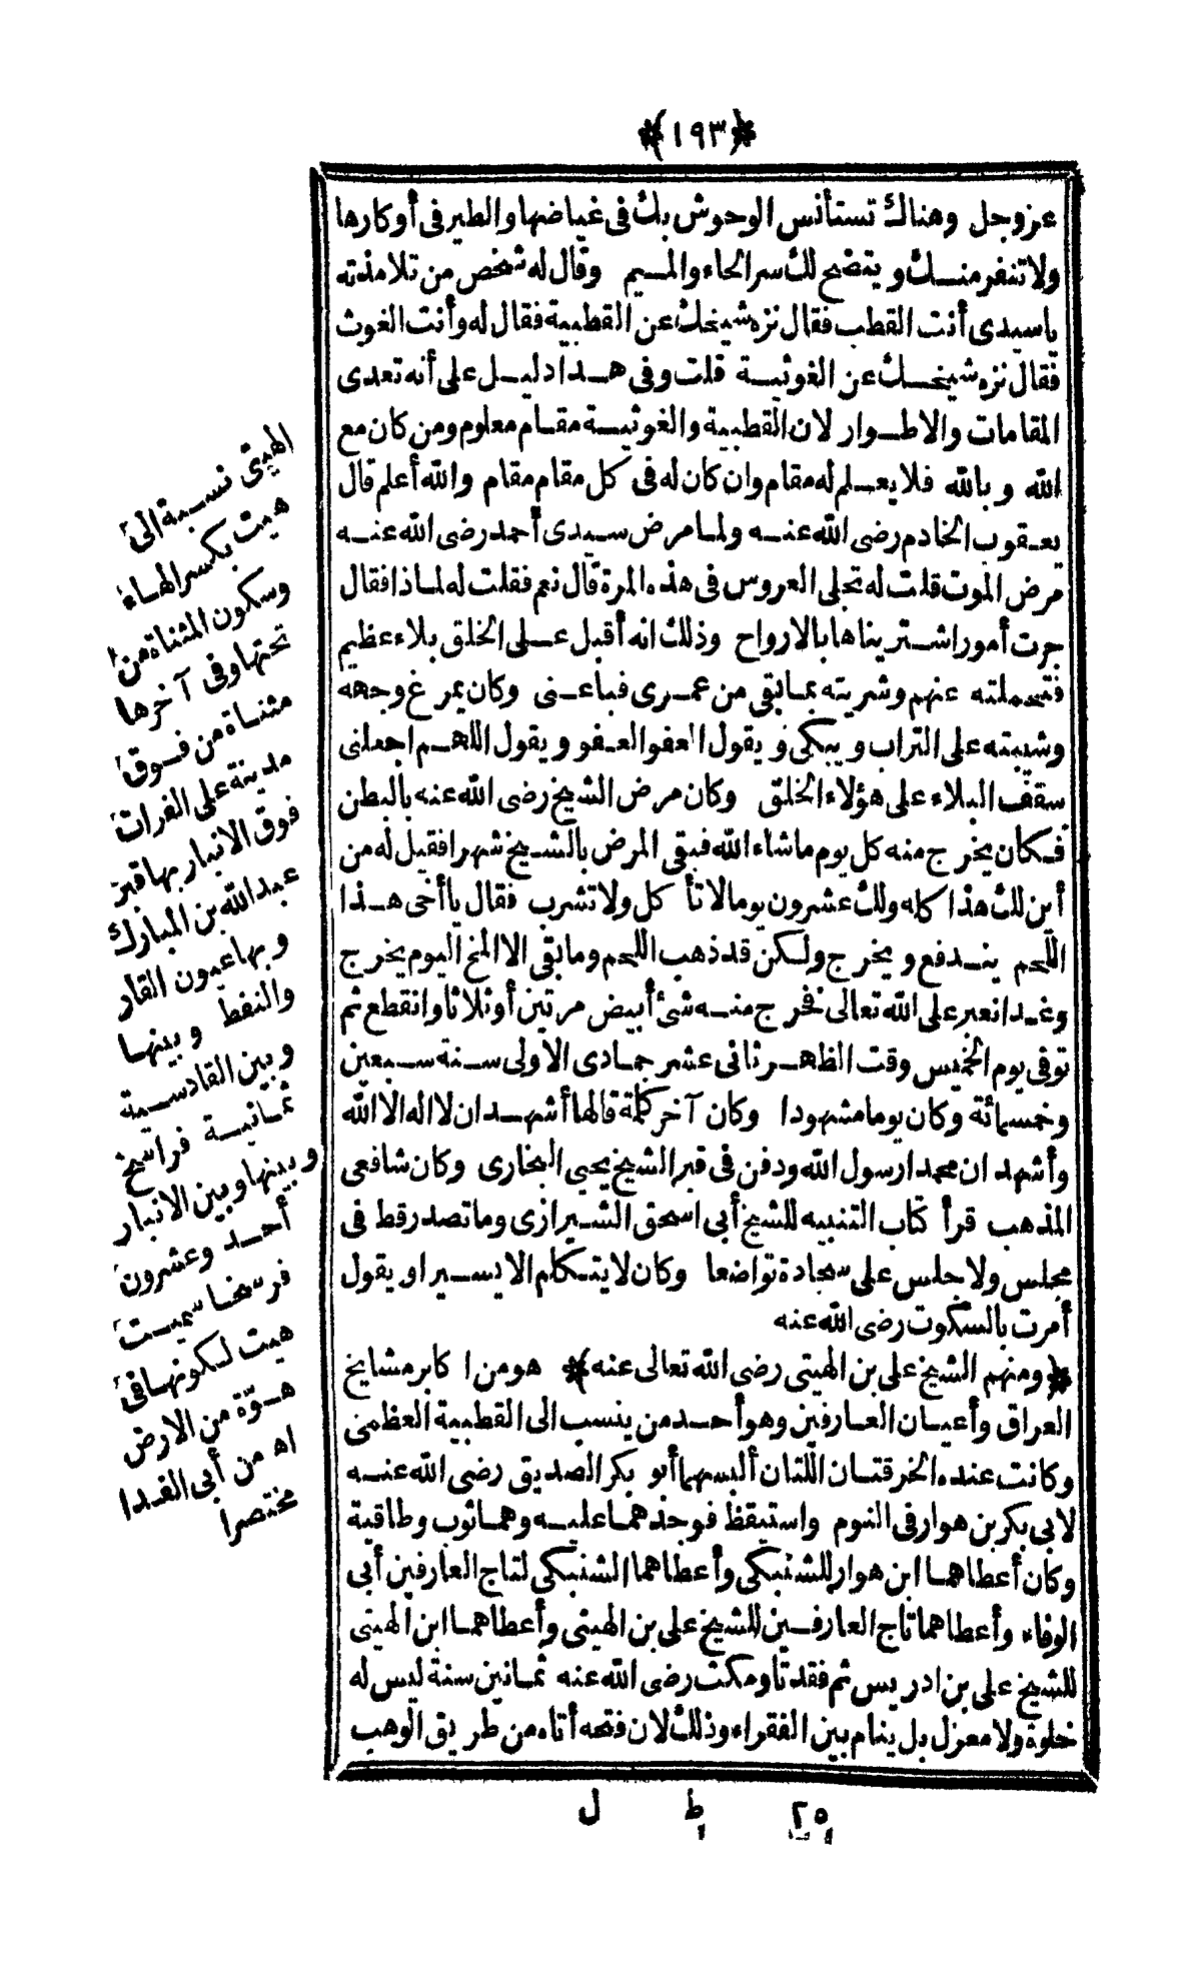 ﴿١٩٣﴾
عز وجل وهناك تستأنس الوحوش بك في غياضها والطير في أوكارها
ولا تنفر منك ويتضح لك سر الحاء والميم وقال له شخص من تلامذته
يا سيدى أنت القطب فقال نزه شيخك عن القطبية فقال له وأنت الغوث
فقال نزه شيخك عن الغوثية قلت وفى هذا دليل على أنه تعدى
المقامات والاطوار لان القطبية والغوثية مقام معلوم ومن كان مع
الله وبالله فلا يعلم له مقام وان كان له فى كل مقام مقام والله أعلم قال
يعقوب الخادم رضى الله عنه ولما مرض سيدى أحمد رضى الله عنه
مرض الموت قلت له تجلى العروس فى هذه المرة قال نعم فقلت له لماذا فقال
جرت أمور اشتريناها بالارواح وذلك انه أقبل على الخلق بلاء عظيم
فتحملته عنهم وشريته بما بقى من عمرى فباعنى وكان يمرغ وجهه
وشيبته على التراب ويبكى ويقول العفو العفو ويقول اللهم اجعلنى
سقف البلاء على هؤلاء الخلق وكان مرض الشيخ رضى الله عنه بالبطن
فكان يخرج منه كل يوم ما شاء الله فبقى المرض بالشيخ شهرا فقيل له من
أين لك هذا كله ولك عشرون يوما لا تأكل ولا تشرب فقال يا أخى هذا
اللحم يندفع ويخرج ولكن قد ذهب اللحم وما بقى الا المخ اليوم يخرج
وغدا نعبر على الله تعالى فخرج منه شئ أبيض مرتين أو ثلاثا وانقطع ثم
توفى يوم الخميس وقت الظهر ثانى عشر جمادى الاولى سنة سبعين
وخمسمائة وكان يوما مشهودا وكان آخر كلمة قالها أشهد ان لا اله الا الله
وأشهد ان محمدا رسول الله ودفن فى قبر الشيخ يحيى البخارى وكان شافعى
المذهب قرأ كتاب التنبيه للشيخ أبى اسحق الشيرازى وما تصدر قط فى
مجلس ولا جلس على سجادة تواضعا وكان لا يتكلم الا يسيرا ويقول
أمرت بالسكوت رضى الله عنه
﴿ومنهم الشيخ على بن الهيتى رضى الله تعالى عنه﴾ هو من اكابر مشايخ
العراق وأعيان العارفين وهو أحد من ينسب الى القطبية العظمى
وكانت عنده الخرقتان اللتان ألبسهما أبو بكر الصديق رضى الله عنه
لابى بكر بن هوار فى النوم واستيقظ فوجدهما عليه وهما ثوب وطاقية
وكان أعطاهما ابن هوار للشنبكى وأعطاهما الشنبكى لتاج العارفين أبى
الوفاء وأعطاهما تاج العارفين للشيخ على بن الهيتى وأعطاهما ابن الهيتى
للشيخ على بن ادريس ثم فقدتا ومكث رضى الله عنه ثمانين سنة ليس له
خلوة ولا معزل بل ينام بين الفقراء وذلك لان فتحه أتاه من طريق الوهب
٢٥ ط ل
الهيتى نسبة الى
هيت بكسر الهاء
وسكون المثناة من
تحتها وفى آخرها
مثناة من فوق
مدينة على الفرات
فوق الانبار بها قبر
عبد الله بن المبارك
وبها عيون القار
والنفط وبينها
وبين القادسية
ثمانية فراسخ
وبينها وبين الانبار
أحد وعشرون
فرسخا سميت
هيت لكونها فى
هوّة من الارض
اه من أبى الفدا
مختصرا